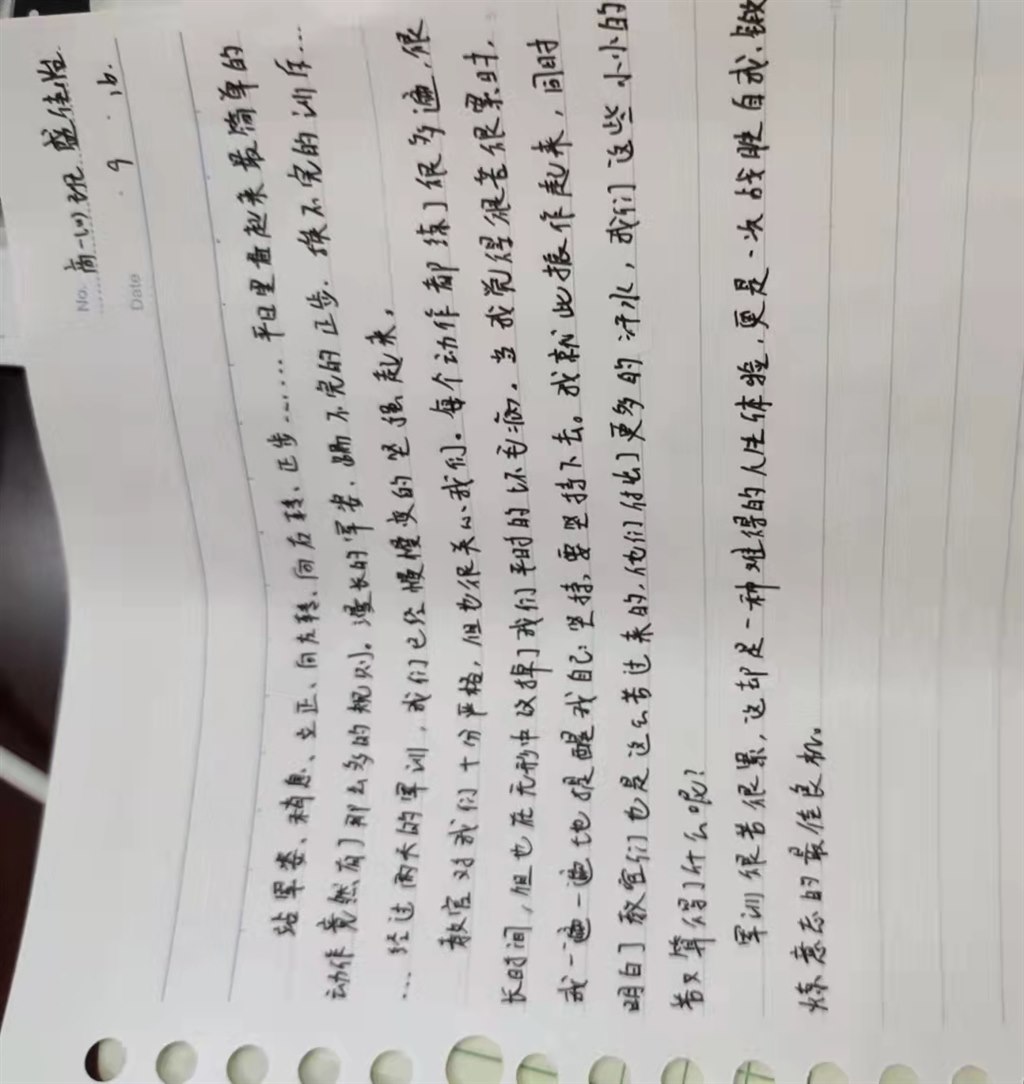 No. 高一(4)班 盛佳怡
Date . 9 . 16.
站军姿、稍息、立正、向左转、向右转、正步……平日里看起来最简单的
动作竟然有了那么多的规则。漫长的军姿、踢不完的正步、挨不完的训斥…
…经过两天的军训，我们已经慢慢变的坚强起来。
教官对我们十分严格，但也很关心我们。每个动作都练了很多遍，很
长时间，但也在无形中改掉了我们平时的坏毛病。当我觉得很苦很累时，
我一遍一遍地提醒我自己坚持，要坚持下去。我就此振作起来，同时
明白了教官们也是这么苦过来的，他们付出了更多的汗水，我们这些小小的
苦又算得了什么呢？
军训很苦很累，这却是一种难得的人生体验，更是一次战胜自我、锻
炼意志的最佳良机。